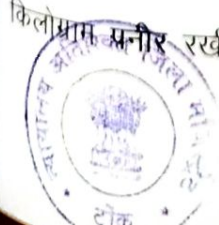 किलोग्राम पनीर रखे
न्यायालय अतिरिक्त जिला
टोंक